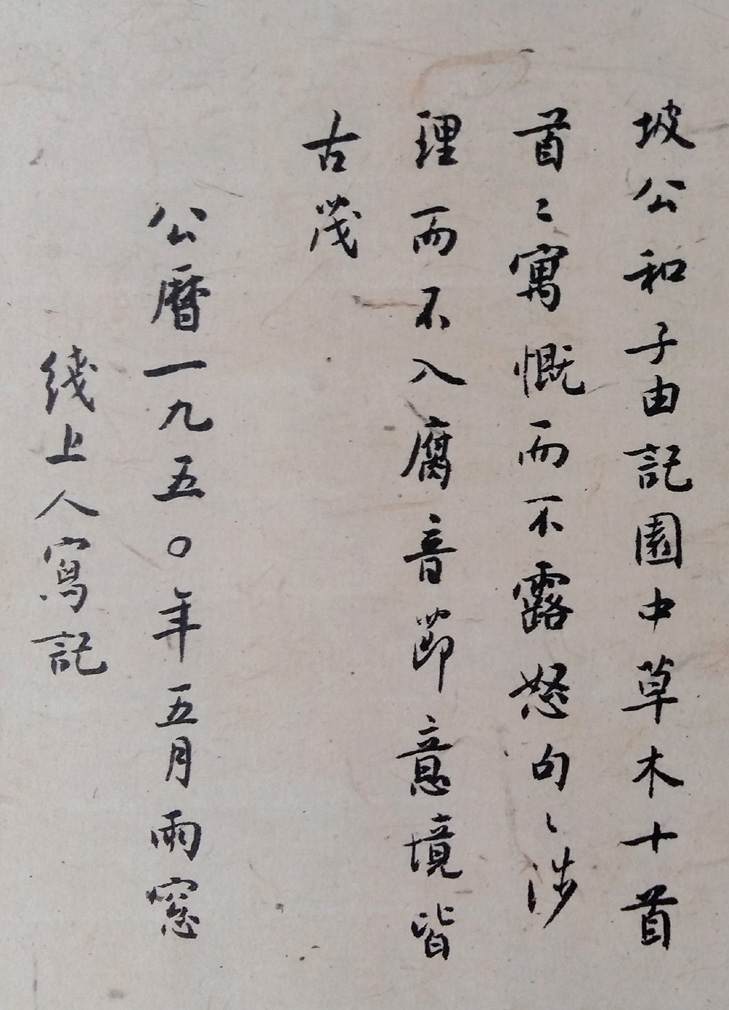 坡公和子由記園中草木十首
首〻寓慨而不露怒句〻涉
理而不入腐音節意境皆
古茂
公曆一九五〇年五月雨窓
綫上人寫記